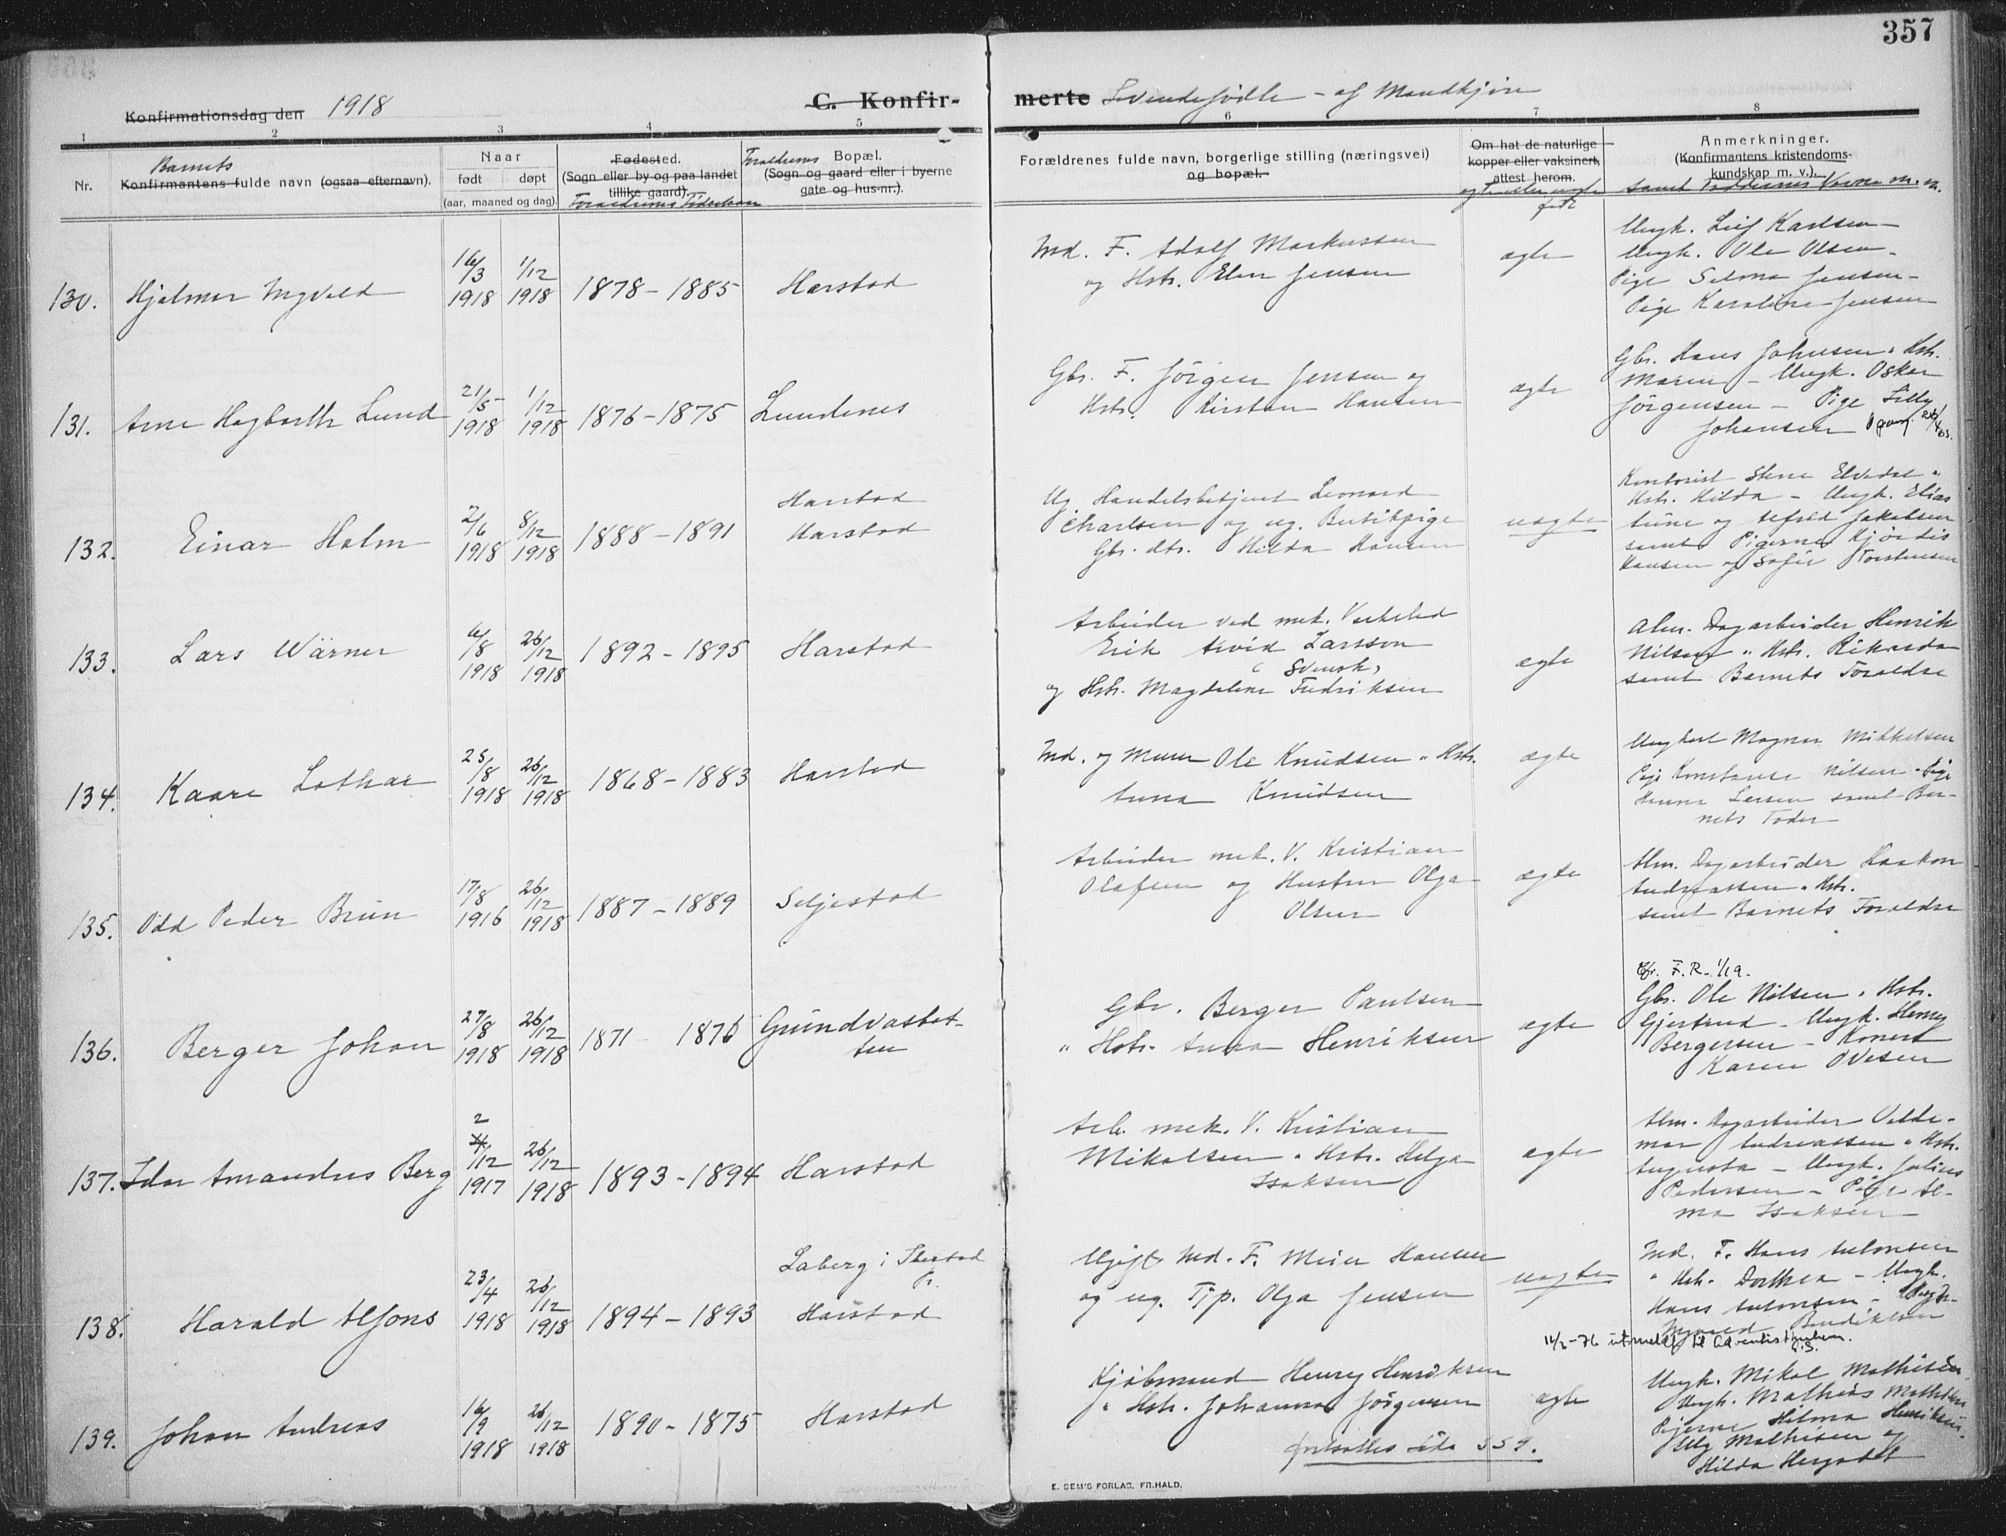 357
Konfirmationsdag den 1918
C. Konfirmerte Levendefødte - af Mandkjøn
1 2 3 4 5 6 7 8
Nr.
Barnets
Konfirmantens fulde navn (ogsaa efternavn).
Naar
født døpt
(aar, maaned og dag)
Fødested.
(Sogn eller by og paa landet
tillike gaard).
Forældrenes Fødselsaar
Forældrenes Bopæl.
(Sogn og gaard eller i byerne
gate og hus-nr.).
Forældrenes fulde navn, borgerlige stilling (næringsvei)
og bopæl.
Om hat de naturlige
kopper eller vaksinert,
attest herom.
Anmerkninger.
(Konfirmantens kristendoms-
kundskap m. v.).
samt Faddernes Navne m. m.
130. Hjalmar Ingvald
16/3 1918
1/12 1918
1878 - 1885
Harstad
Ind. F. Adolf Markussen
og Hstr. Elen Jensen
ægte
Ungk. Leif Karlsen -
Ungk. Ole Olsen -
Pige Selma Jensen -
Pige Karoline Jensen
131. Arne Hagbarth Lund
21/5 1918
1/12 1918
1876 - 1875
Lundenes
Gbr. F. Jörgen Jensen og
Hstr. Kirsten Hansen
ægte
Gbr. Hans Johnsen " Hstr.
Maren - Ungk. Oskar
Jørgensen - Pige Lilly
Johansen
132. Einar Holm
2/6 1918
8/12 1918
1888 - 1891
Harstad
Harstad
Ug. Handelsbetjent Leonard
Charlsen og ug. Butikpige
Gbr. dtr. Hilda Hansen
uægte
Kontorist Elvedal "
Hstr. Hilda - Ungk. Elias
og Jakobsen
samt Pigerne Hjördis
Hansen og Sofie Torstensen
133. Lars Wärner
6/8 1918
26/12 1918
1892 - 1895
Harstad
Arbeider ved mek. Verksted
Erik Arvid Larsson
(Svensk)
og Hstr. Magdelene Fredriksen
ægte
Alm. Dagarbeider Henrik
Nilsen " Hstr. Rikarda
samt Barnets Forældre
134. Kaare Lothar
25/8 1918
26/12 1918
1868 - 1883
Harstad
Ind. og Murer Ole Knudsen " Hstr.
Anna Knudsen
ægte
Ungkarl Magnus Mikkelsen
Pige Konstanse Nilsen - Pige
Hanna Larsen samt Bar-
nets Fader
135. Odd Peder Brun
17/8 1916
26/12 1918
1887 - 1889
Seljestad
Arbeider mek. V. Kristian
Olafsen og Hustru Olga
Olsen
ægte
Alm. Dagarbeider Haakon
Andreassen " Hstr.
samt Barnets Forældre
136. Berger Johan
27/8 1918
26/12 1918
1871 - 1876
Grundvasbot-
ten
Gbr. Berger Paulsen
" Hstr. Anna Henriksen
ægte
Cfr. F. R. 1/19.
Gbr. Ole Nilsen " Hstr.
Gjertrud - Ungk. Henry
Bergersen - Konerst
Karen Ovesen
137. Idar Amandus Berg
2
4/12 1917
26/12 1918
1893 - 1894
Harstad
Arb. mek. V. Kristian
Mikalsen " Hstr. Helga
Isaksen
ægte
Alm. Dagarbeider Valde-
mar Andreassen " Hstr.
Augusta - Ungk. Julius
Pedersen - Pige Al-
ma Isaksen
138. Harald Alfons
23/4 1918
26/12 1918
1894 - 1893
Laberg i Ibestad
Pr.
Harstad
Ugift Ind. F. Meier Hansen
og ug. Tjp. Olga Jensen
uægte
Ind. F. Hans Antonsen
" Hstr. Dorthea - Ungk.
Hans Antonsen - Pige
Bendiktsen
14/2-76 utmeldt til Adventistkirken.
139. Johan Andreas
16/9 1918
26/12 1918
1890 - 1875
Harstad
Kjøbmand Henry Henriksen
" Hstr. Johanna Jørgensen
ægte
Ungk. Mikal Mathisen
Ungk. Mathis Mathisen
Pigerne Hilma Henriksen
Mathisen og
Hilda
fortsættes Side 359.
E. SEM'S FORLAG, FR.HALD.